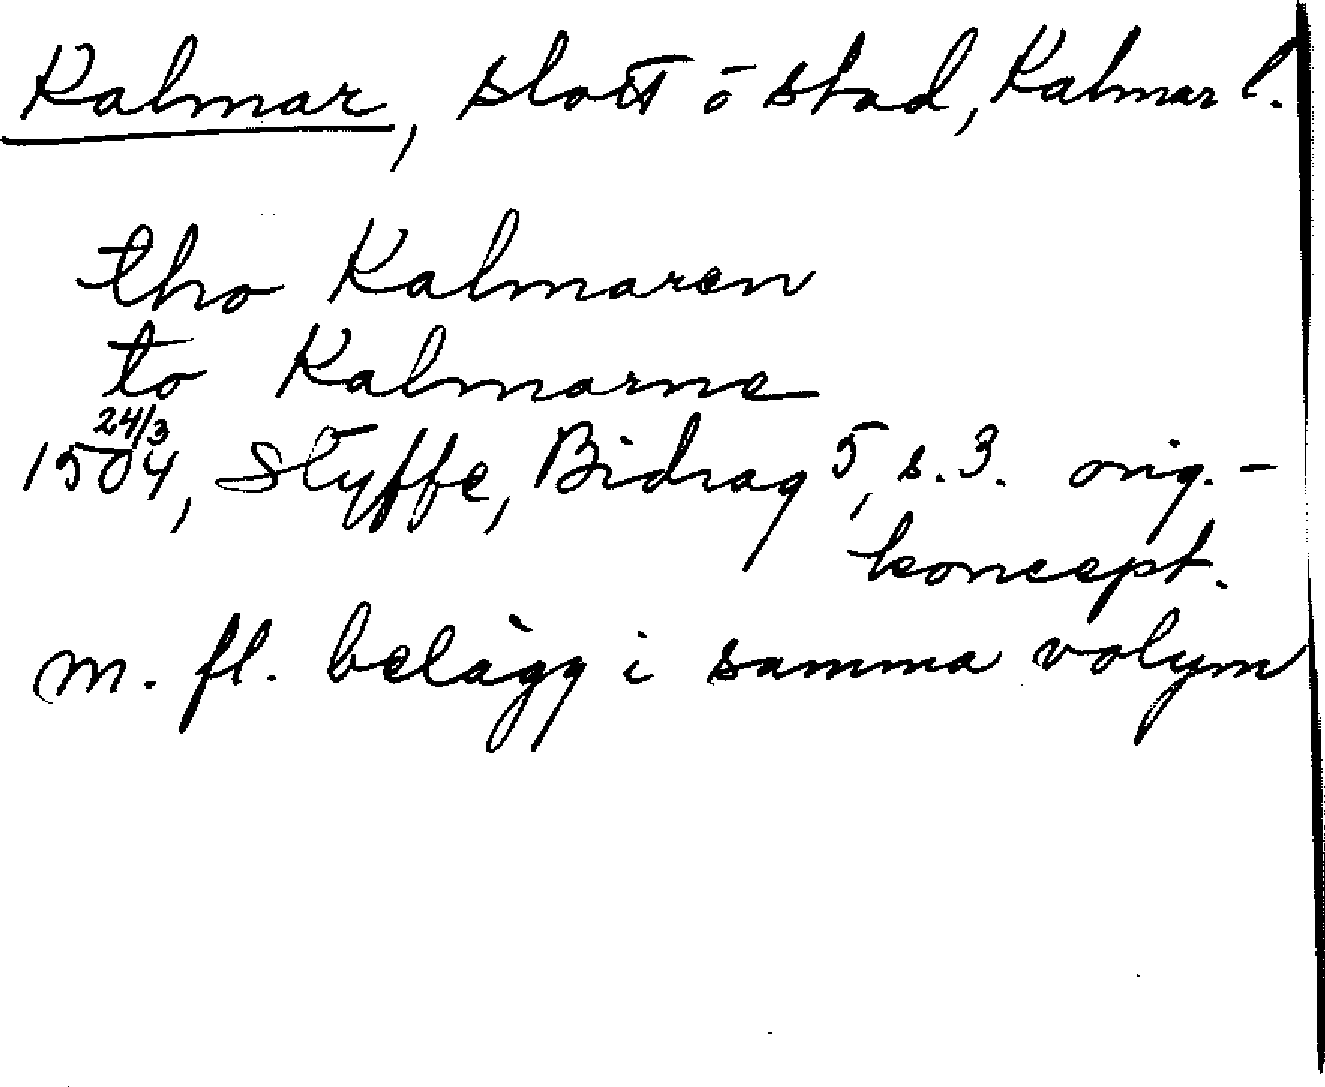 Kalmar, slott o stad, Kalmar l.
tho Kalmaren
to Kalmarne
24/3
1504, Styffe, Bidrag 5, s. 3. orig.-
koncept.
m. fl. belägg i samma volym